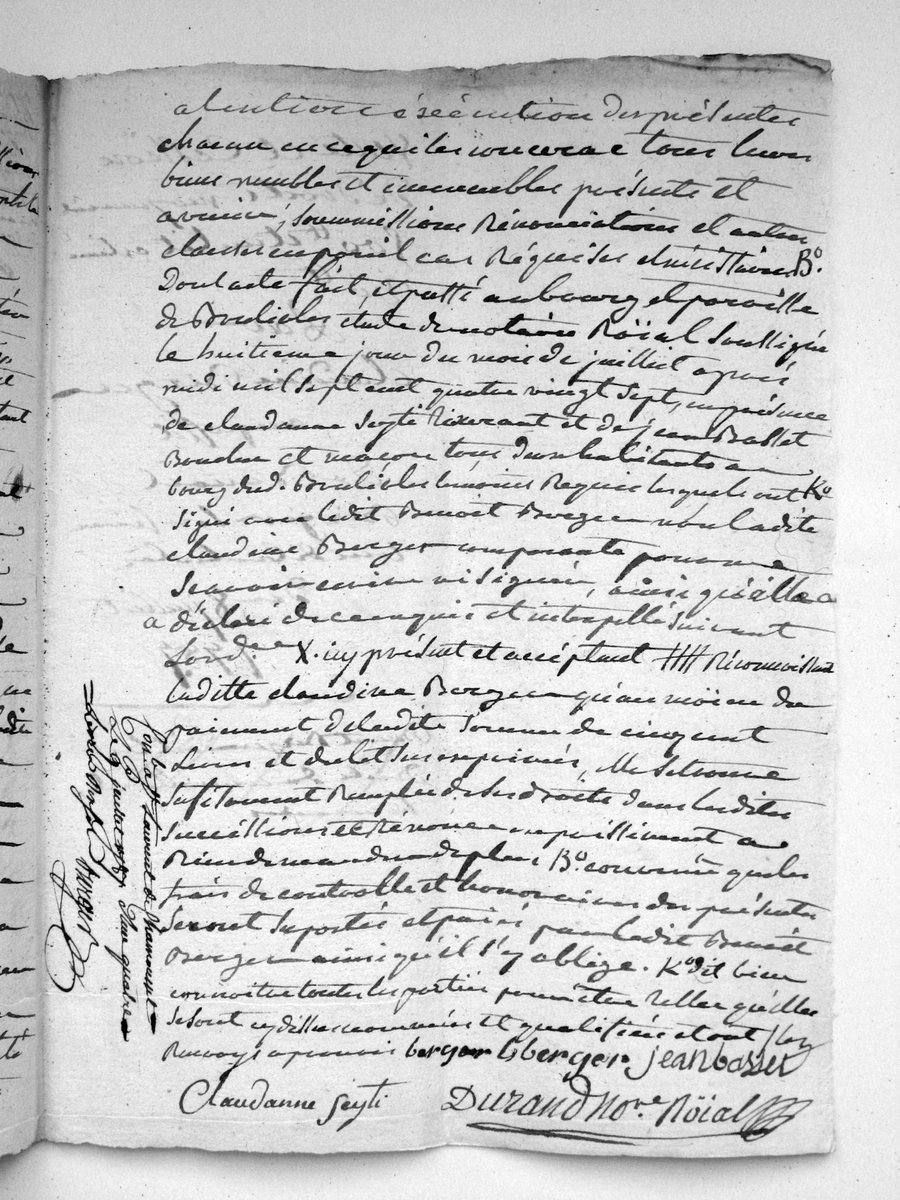 a lentiere éxécution des présentes
chacun en ce qui les concerne tous leurs
biens meubles et immeubles présents et
avenir, soummissions Rénonciations et autres
clauses en pareil cas Réquises et nécéssaires B.°
Dont acte fait et passé au bourg et paroisse
de étude du notaire Röial soussigné
le huitieme jour du mois de juillet aprés
midi mil sept cent quatre vingt sept, en présence
de claudanne Seyti et de jean Basset
et maçon tous deux habitants au
bourg dud. témoins Requis lesquels ont K°
signé avec ledit Benoit Berger non ladite
claudine Berger comparante pour ne
scavoir écrire ni signer, ainsi qu'elle a
a déclaré de ce enquise et interpellé suivant
Lord.ce X. icy présent et acceptant HH Réconnoissant
laditte claudine Berger qu'au moïen du
paiement de ladite somme de cinq cent
Livres et du lit sus exprimés, Elle se trouve
sufisament Remplie de ses droits dans lesdites
successions et Rénonce expressément a
Rien demander de plus B.° convenu que les
frais de controlle et honoraires des présentes
Seront suportés et paiés par ledit Benoit
Berger ainsi qu'il s'y oblige. K° dit bien
connoitre toutes les parties pour être telles qu'elles
se sont cy dessus nommées et qualifiées et ont les
Renvoys aprouvés berger b berger. jean basset
Claudanne Seyti Durand No.re Röial
Con.lé a St Laurent de Chamousset
Le juillet 1787 Reçu quatre